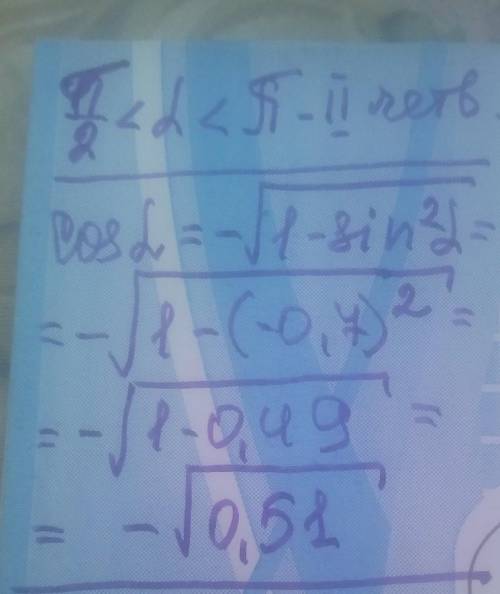 π/2 < α < π - II четв.
cos α = -√(1 - sin²α) =
= -√(1 - (-0,7)²) =
= -√(1 - 0,49) =
= -√(0,51)